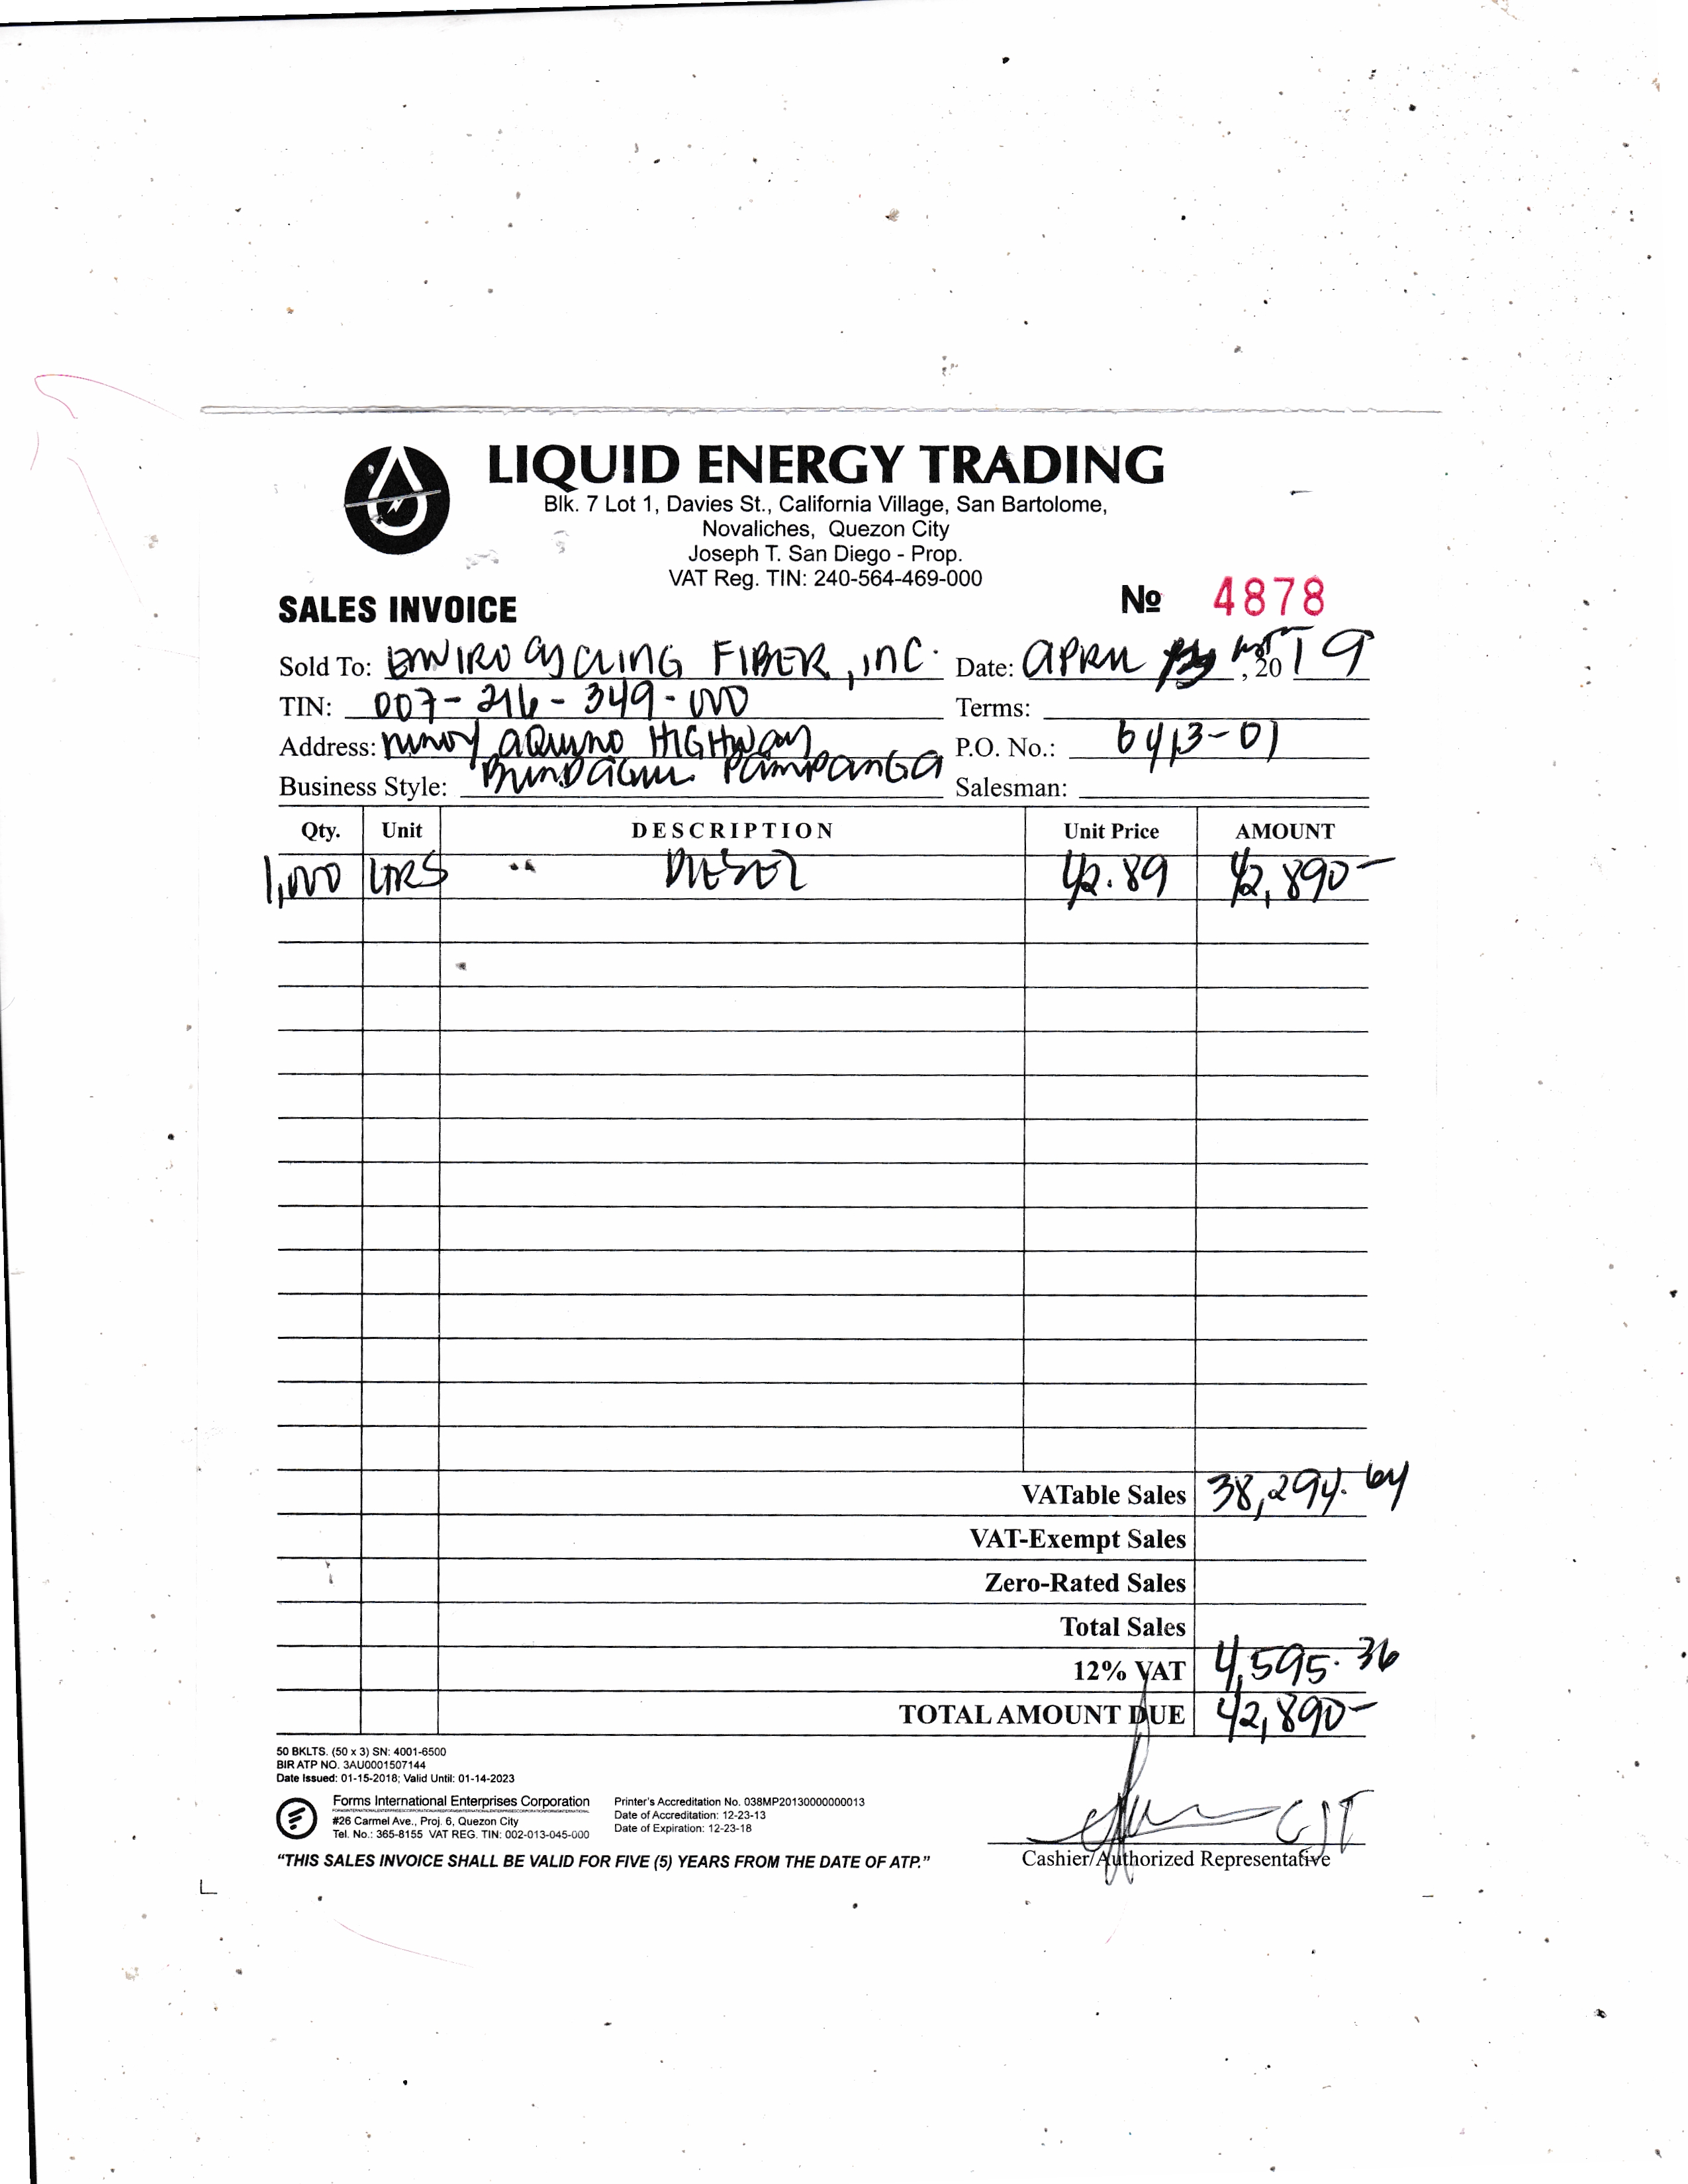 LIQUID ENERGY TRADING
Blk. 7 Lot 1, Davies St., California Village, San Bartolome,
Novaliches, Quezon City
Joseph T. San Diego - Prop.
VAT Reg. TIN: 240-564-469-000
SALES INVOICE
№ 4878
Sold To: ENVIRO CYCLING FIBER, INC. Date: APRIL , 2019
TIN: 007-216-349-000 Terms:
Address: NINOY AQUINO HIGHWAY P.O. No.: 6413-01
Business Style: PAMPANGA Salesman:
Qty. Unit DESCRIPTION Unit Price AMOUNT
1,000 LTRS DIESEL 42.89 42,890-
VATable Sales 38,294.64
VAT-Exempt Sales
Zero-Rated Sales
Total Sales
12% VAT 4,595.36
TOTAL AMOUNT DUE 42,890-
50 BKLTS. (50 x 3) SN: 4001-6500
BIR ATP NO. 3AU0001507144
Date Issued: 01-15-2018; Valid Until: 01-14-2023
Forms International Enterprises Corporation
#26 Carmel Ave., Proj. 6, Quezon City
Tel. No.: 365-8155 VAT REG. TIN: 002-013-045-000
Printer's Accreditation No. 038MP20130000000013
Date of Accreditation: 12-23-13
Date of Expiration: 12-23-18
Cashier/Authorized Representative
"THIS SALES INVOICE SHALL BE VALID FOR FIVE (5) YEARS FROM THE DATE OF ATP."